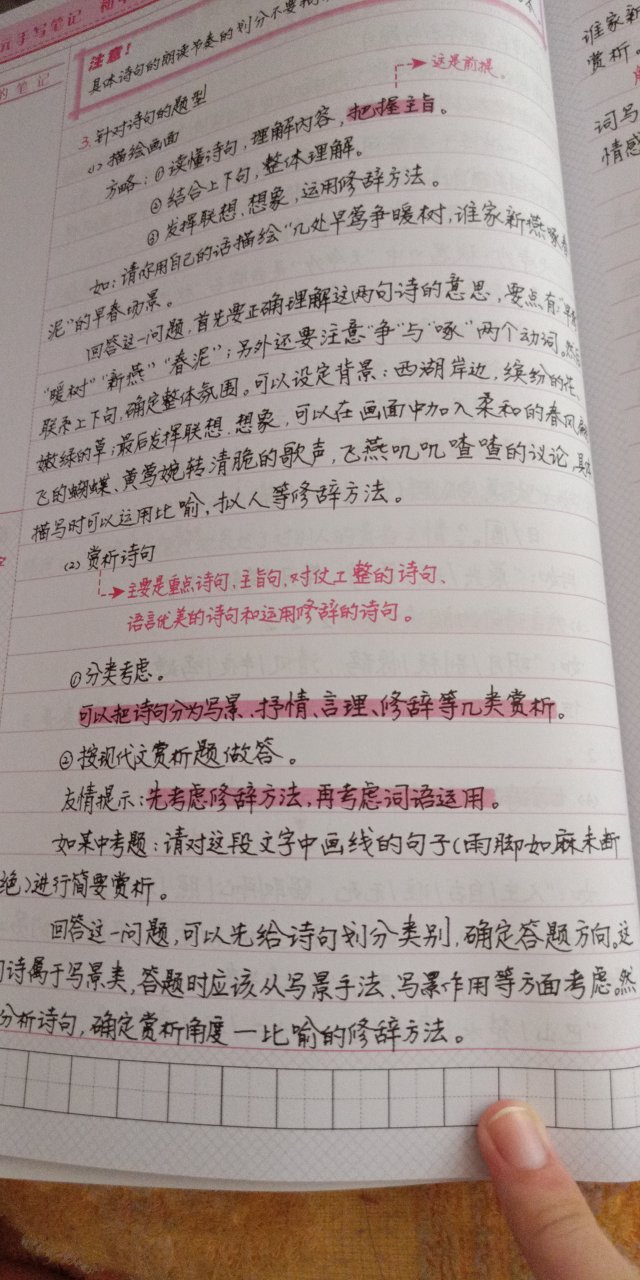 手写笔记
的笔记
注意！
具体诗句的朗读节奏的划分不要
3.针对诗句的题型
(1)描绘画面
这是前提。
方略：①读懂诗句，理解内容，把握主旨。
②结合上下句，整体理解。
③发挥联想、想象，运用修辞方法。
如：请你用自己的话描绘“几处早莺争暖树，谁家新燕啄春
泥”的早春场景。
回答这一问题，首先要正确理解这两句诗的意思，要点有：“早
“暖树”“新燕”“春泥”；另外还要注意“争”与“啄”两个动词。然后
联系上下句，确定整体氛围。可以设定背景：西湖岸边，缤纷的花、
嫩绿的草；最后发挥联想、想象，可以在画面中加入柔和的春风、
飞的蝴蝶、黄莺婉转清脆的歌声，飞燕叽叽喳喳的议论，具体
描写时可以运用比喻、拟人等修辞方法。
(2)赏析诗句
主要是重点诗句、主旨句、对仗工整的诗句、
语言优美的诗句和运用修辞的诗句。
①分类考虑。
可以把诗句分为写景、抒情、言理、修辞等几类赏析。
②按现代文赏析题做答。
友情提示：先考虑修辞方法，再考虑词语运用。
如某中考题：请对这段文字中画线的句子（雨脚如麻未断
绝）进行简要赏析。
回答这一问题，可以先给诗句划分类别，确定答题方向。这
诗属于写景类，答题时应该从写景手法、写景作用等方面考虑。然
分析诗句，确定赏析角度—比喻的修辞方法。
谁家新
赏析
词写
情感